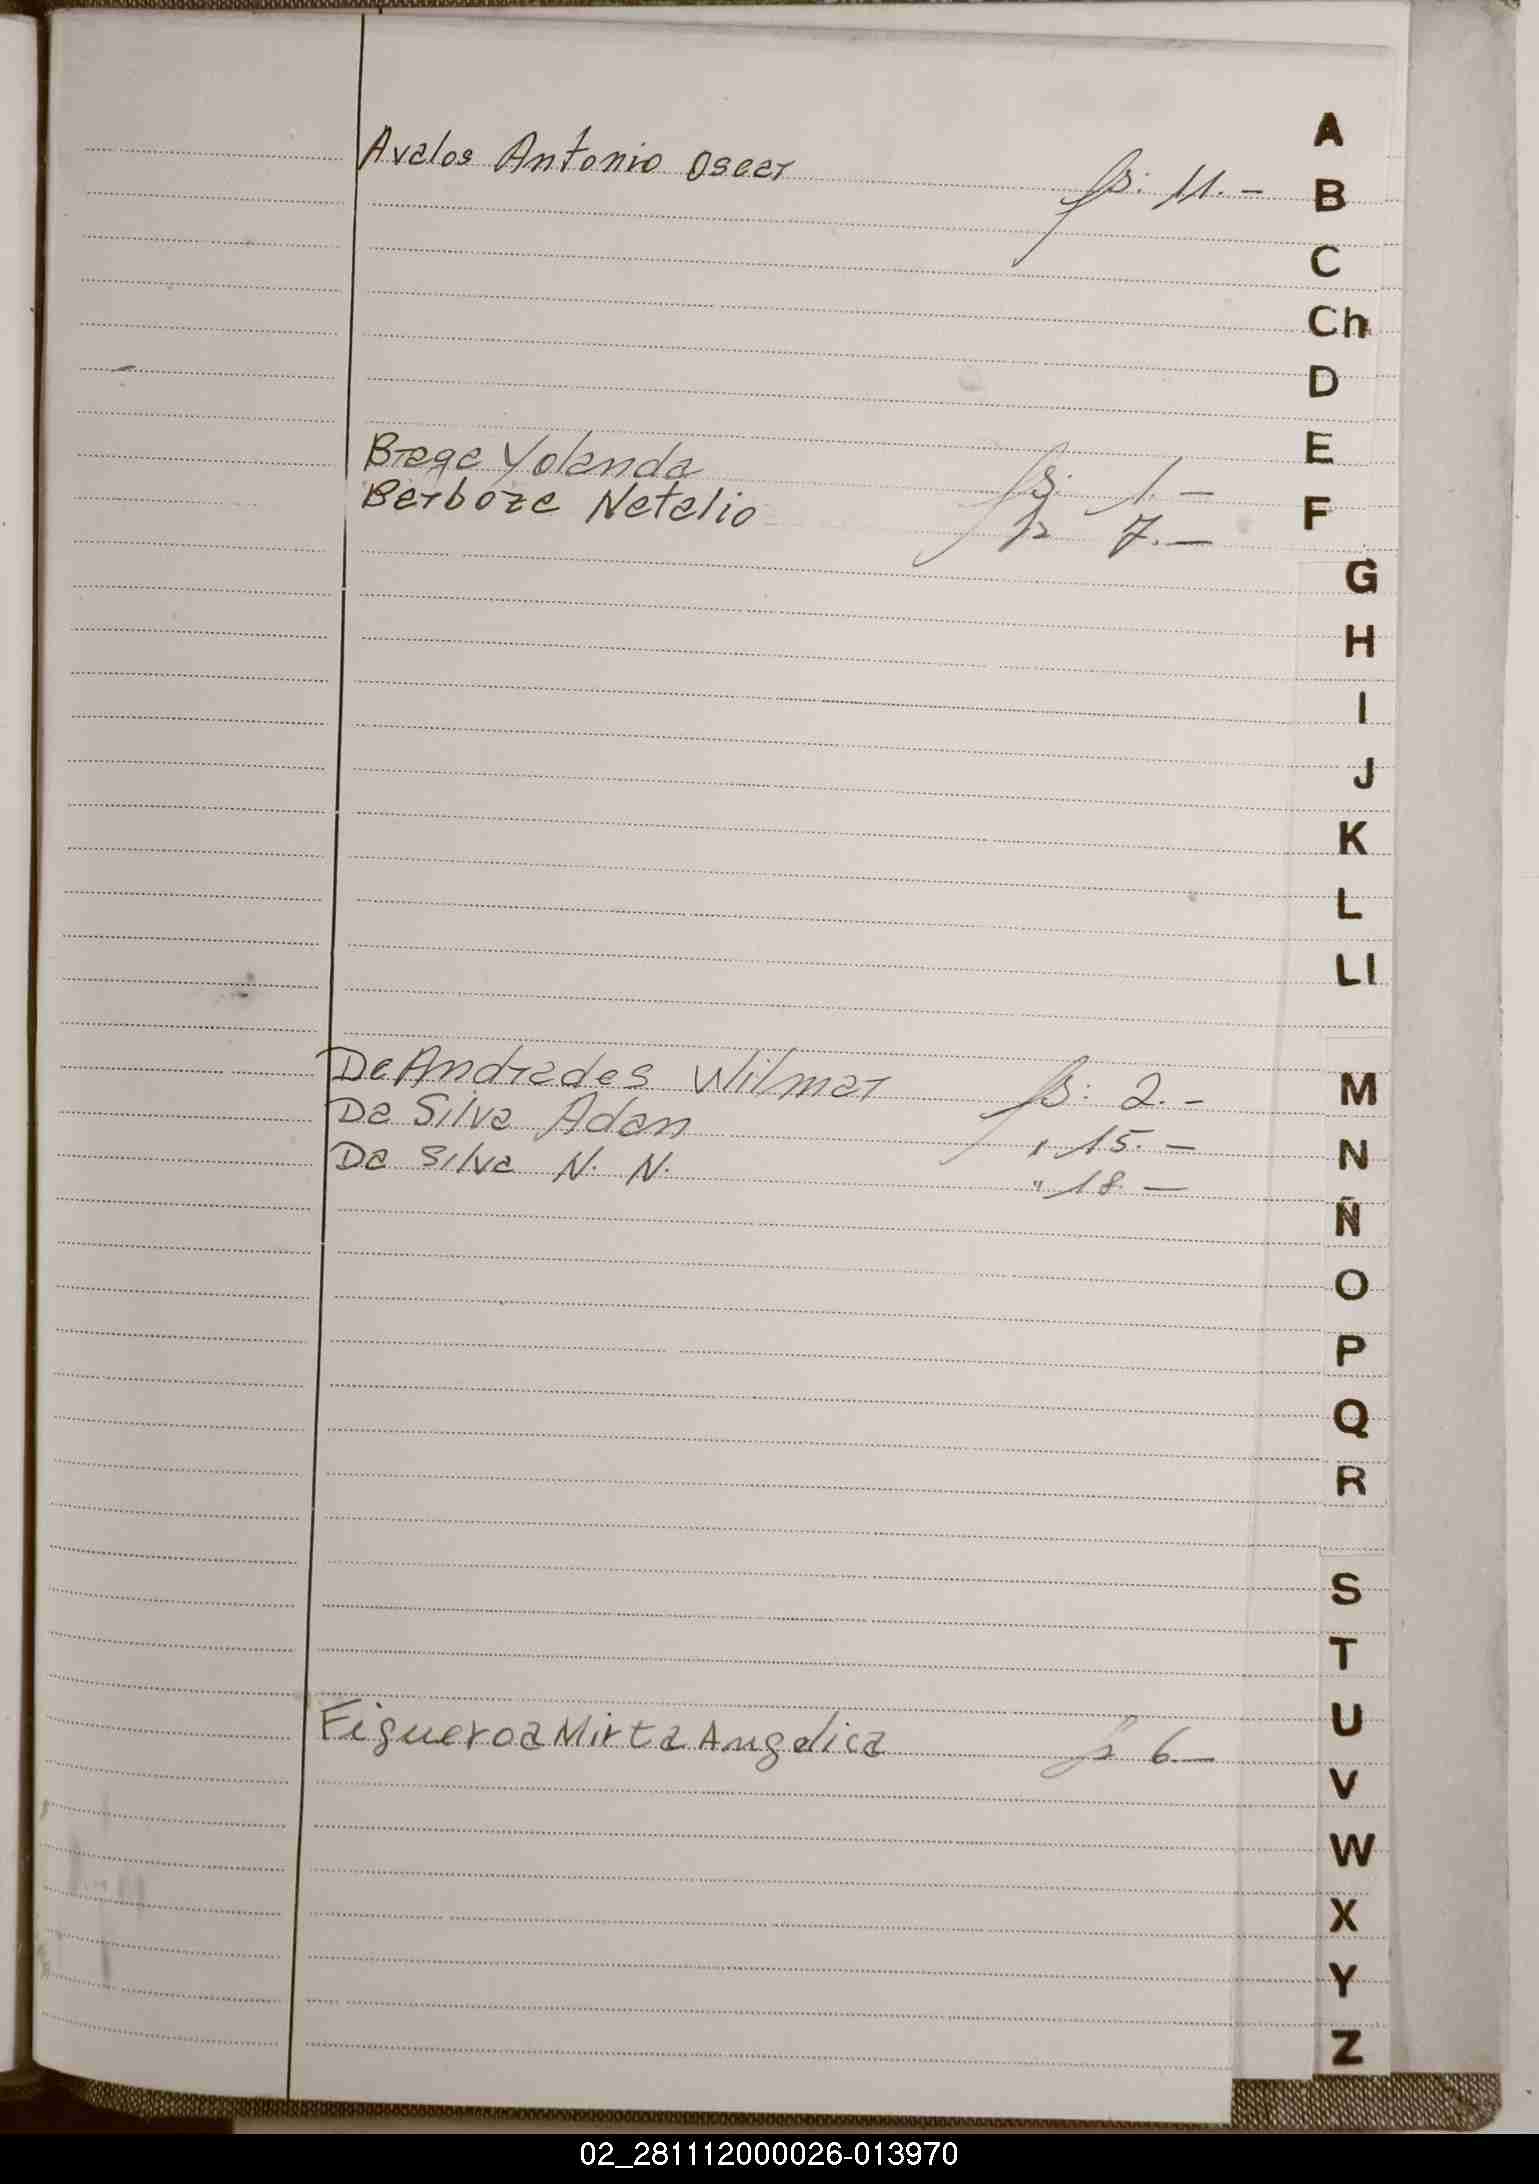 Avalos Antonio Oscar fs: 11.-
Braga Yolanda fs: 1.-
Barboza Natalio fs 7.-
De Andrades Wilmar fs: 2.-
Da Silva Adan " 15.-
Da Silva N. N. " 18.-
Figueroa Mirta Angelica fs 6-
A
B
C
Ch
D
E
F
G
H
I
J
K
L
Ll
M
N
Ñ
O
P
Q
R
S
T
U
V
W
X
Y
Z
02_281112000026-013970